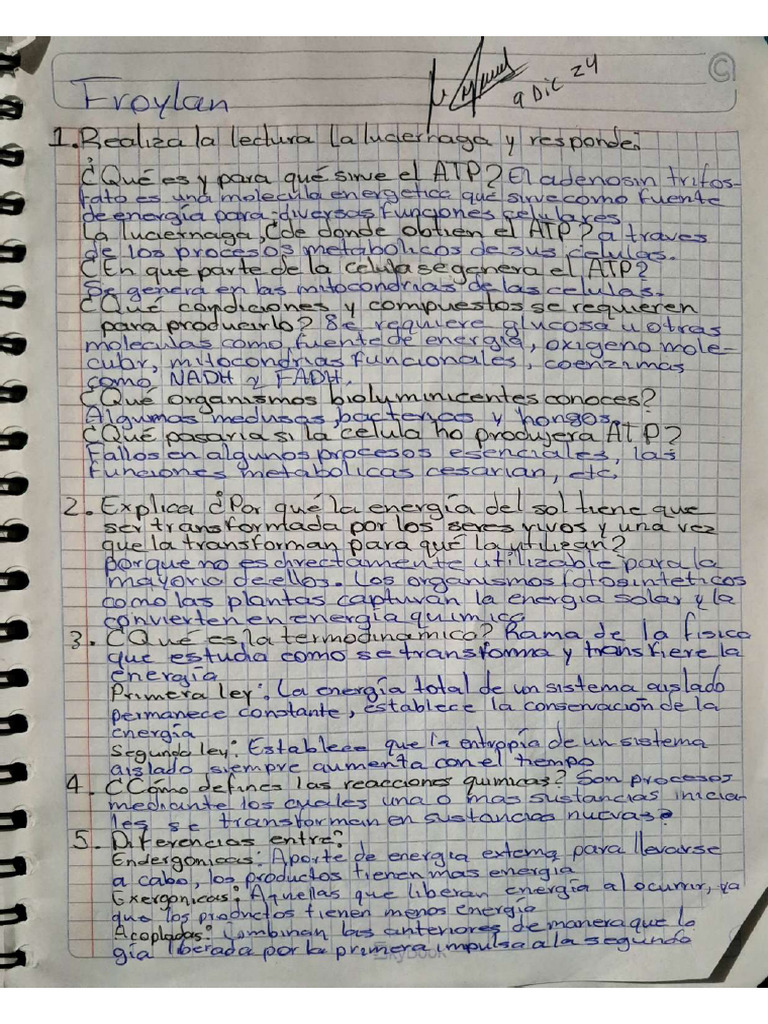 9 Dic 24
Froylan
1. Realiza la lectura La luciernaga y responde:
¿Qué es y para qué sirve el ATP? El adenosin trifos-
fato es una molecula energetica que sirve como fuente
de energía para diversas funciones celulares
La luciernaga, ¿de donde obtien el ATP? a traves
de los procesos metabolicos de sus celulas.
¿En que parte de la celula se genera el ATP?
Se genera en las mitocondrias de las celulas.
¿Qué condiciones y compuestos se requieren
para producirlo? Se requiere glucosa u otras
moleculas como fuente de energía, oxigeno mole-
cular, mitocondrias funcionales, coenzimas
como NADH y FADH.
¿Qué organismos bioluminicentes conoces?
Algunas medusas, bacterias y hongos.
¿Qué pasaría si la celula no produjera ATP?
Fallos en algunos procesos esenciales, las
funciones metabolicas cesarian, etc.
2. Explica ¿Por qué la energía del sol tiene que
ser transformada por los seres vivos y una vez
que la transforman para qué la utilizan?
porque no es directamente utilizable para la
mayoria de ellos. Los organismos fotosinteticos
como las plantas capturan la energia solar y la
convierten en energía quimica
3. ¿Qué es la termodinamica? Rama de la fisica
que estudia como se transforma y transfiere la
energía
Primera ley: La energía total de un sistema aislado
permanece constante, establece la conservación de la
energía
Segunda ley: Establece que la entropía de un sistema
aislado siempre aumenta con el tiempo
4. ¿Cómo defines las reacciones quimicas? Son procesos
mediante los cuales una o mas sustancias inicia-
les se transforman en sustancias nuevas?
5. Diferencias entre:
Endergonicas: Aporte de energia externa para llevarse
a cabo, los productos tienen mas energia
Exergonicas: Aquellas que liberan energía al ocurrir, ya
que los productos tienen menos energía
Acopladas: Combinan las anteriores de manera que la
gía liberada por la primera impulsa a la segunda